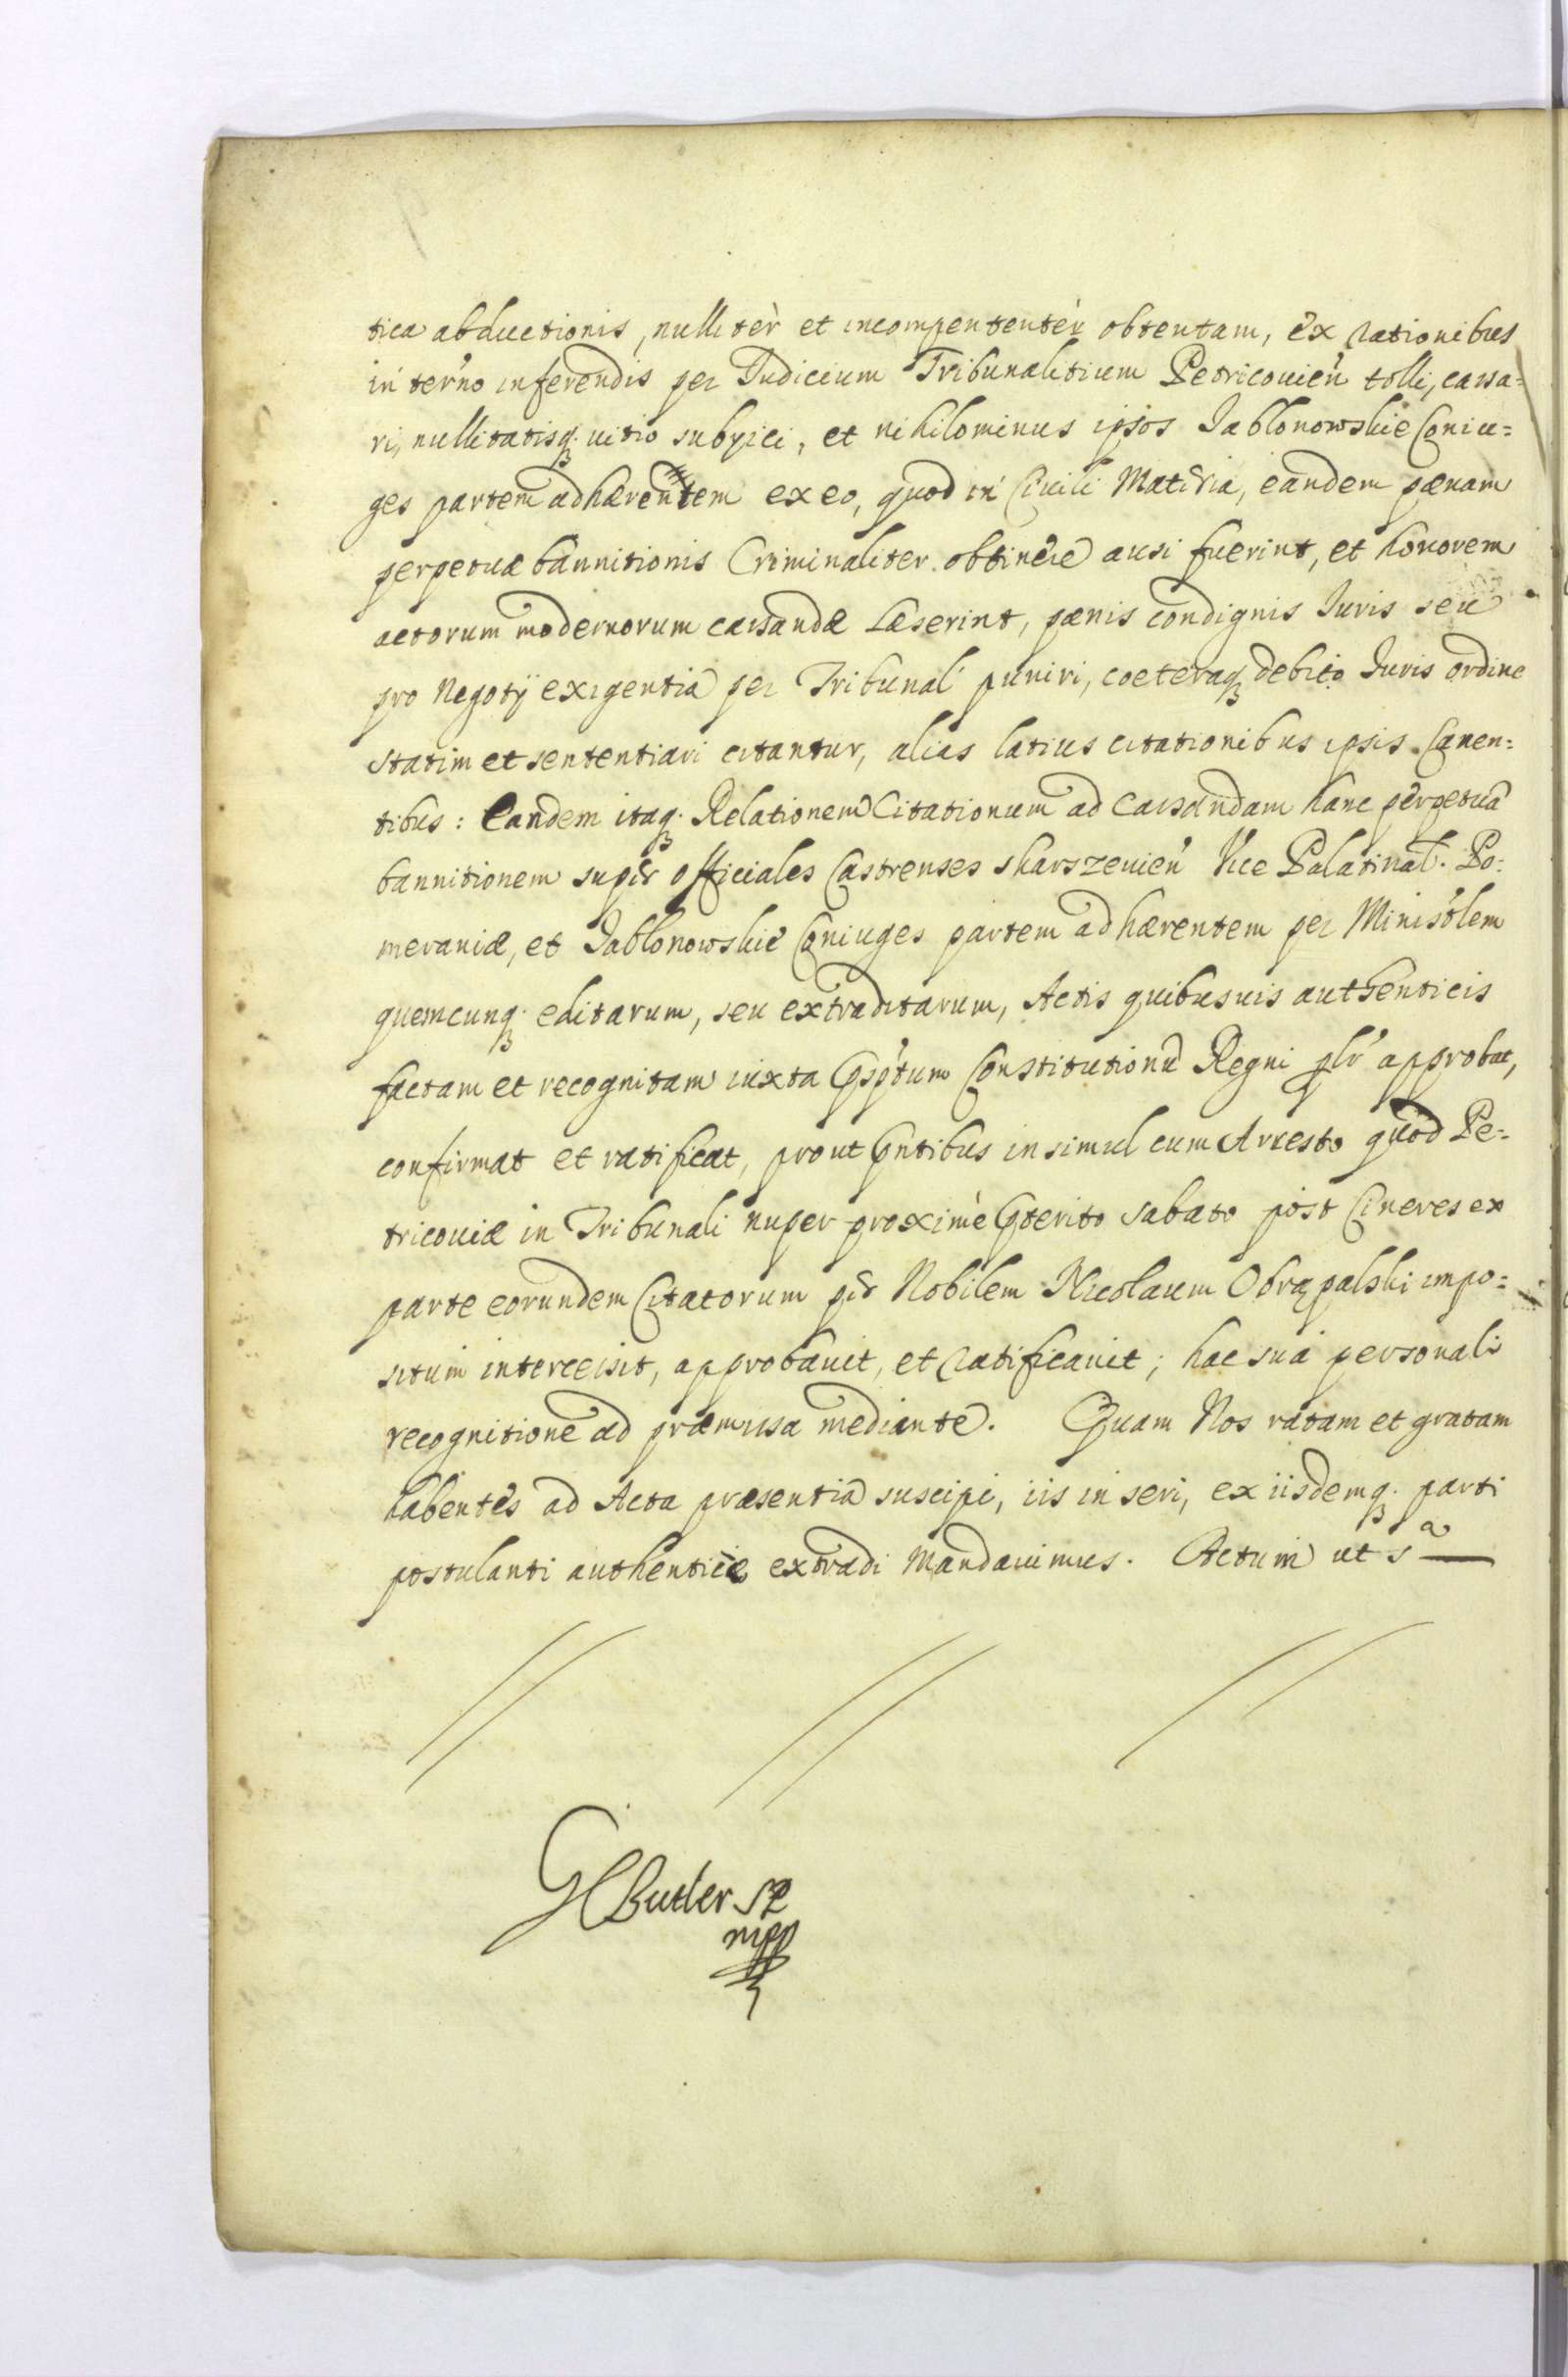 tica abductionis, nulliter et incompententer obtentam, ex rationibus
in termo inferendis per Iudicium Tribunalitium Petricouien tolli, cassa=
ri, nullitatisq; uitio subyici, et nihilominus ipsos Iablonowskie Coniu=
ges partem adhærentem ex eo, quod in Ciuili Materia, eandem pænam
perpetuæ bannitionis Criminaliter obtinere ausi fuerint, et honorem
actorum modernorum cassandæ Læserint, pænis condignis Iuris seu
pro Negotÿ exigentia per Tribunal puniri, coeteraq; debito Iuris ordine
statim et sententiari citantur, alias latius citationibus ipsis Canen=
tibus: Eandem itaq; Relationem Citationum ad Cassandam hanc perpetuã
bannitionem super officiales Castrenses skarszeuien Vice Palatinal. Po=
meraniæ, et Iablonowskie Coniuges partem adhærentem per Minis̃tlem
quemcunq; editarum, seu extraditarum, Actis quibusuis authenticis
factam et recognitam iuxta Constitutionũ Regni approbat,
confirmat et ratificat, prout insimul cum Arresto quod Pe=
tricouiæ in Tribunali nuper proximè Pterito sabato post Cineres ex
parte eorundem Citatorum per Nobilem Nicolaum Obrąpalski impo=
situm intercessit, approbauit, et ratificauit; hac sua personali
recognitione ad præmissa mediante. Quam Nos ratam et gratam
habentes ad Acta præsentia suscipi, iis inseri, ex iisdemq; parti
postulanti authentice extradi Mandauimus. Actum ut sa
GC Butler SP
mpp